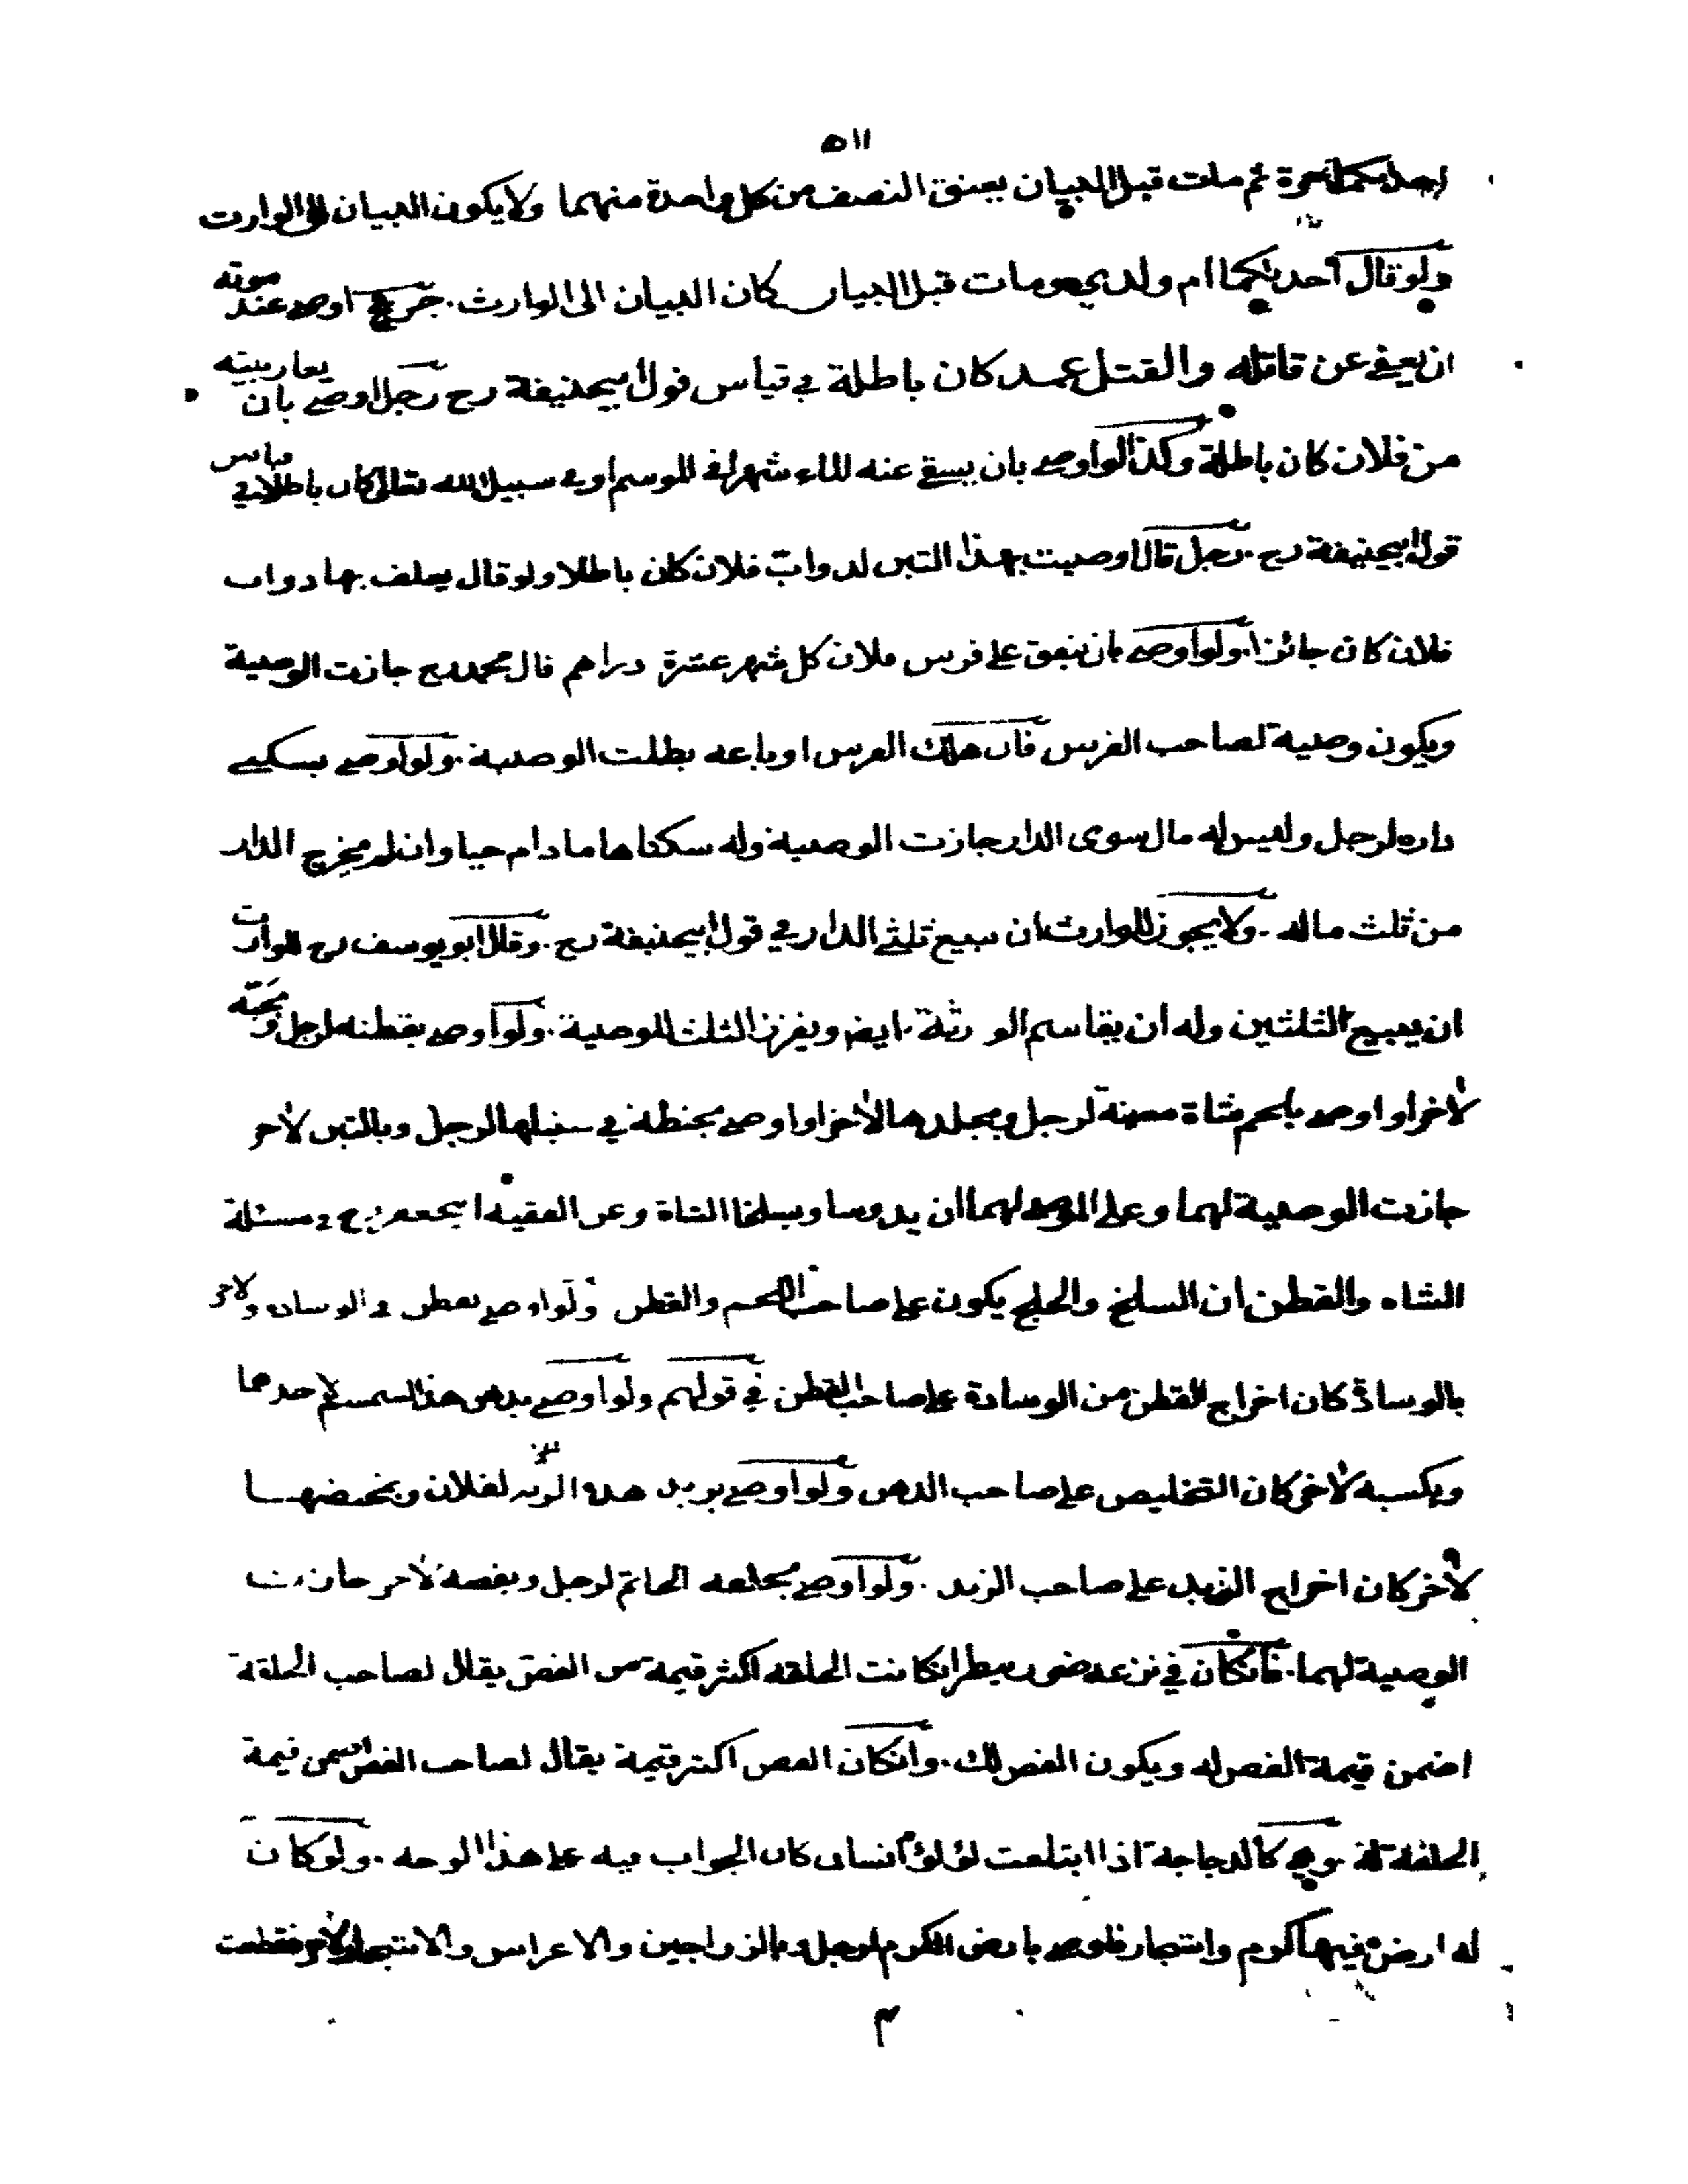 ٥١١
احديكما حرة ثم مات قبل البيان يعتق النصف من كل واحدة منهما ولا يكون البيان الى الوارث
ولو قال احديكما ام ولدي ومات قبل البيان كان البيان الى الوارث. جريح اوصى عند موته
ان يعفى عن قاتله والقتل عمد كان باطلة في قياس قول ابيحنيفة رح رجل اوصى بان
من فلان كان باطلة وكذا لو اوصى بان يسقي عنه الماء شهرا في الموسم او في سبيل الله تعالى كان باطلا في قياس
قول ابيحنيفة رح. رجل قال اوصيت بهذا التبن لدواب فلان كان باطلا ولو قال يعلف بها دواب
فلان كان جائزا. ولو اوصى بان ينفق على فرس فلان كل شهر عشرة دراهم قال محمد رح جازت الوصية
ويكون وصية لصاحب الفرس فان هلك الفرس او باعه بطلت الوصية. ولو اوصى بسكنى
داره لرجل وليس له مال سوى الدار جازت الوصية وله سكناها ما دام حيا وان لم يخرج الدار
من ثلث ماله. ولا يجوز للوارث ان يبيع ثلثي الدار في قول ابيحنيفة رح. وقال ابو يوسف رح للوارث
ان يبيع الثلثين وله ان يقاسم الورثة ايضا ويفرز الثلث للوصية. ولو اوصى بقطنه لرجل وبحبه
لاخر او اوصى بلحم شاة معينة لرجل وبجلدها لاخر او اوصى بحنطة في سنبلها لرجل وبالتبن لاخر
جازت الوصية لهما وعلى الموصى لهما ان يدوسا ويسلخا الشاة وعن الفقيه ابيجعفر رح في مسئلة
الشاه والقطن ان السلخ والحلج يكون على صاحب اللحم والقطن ولو اوصى بقطن في الوسادة ولاخر
بالوسادة كان اخراج القطن من الوسادة على صاحب القطن في قولهم ولو اوصى بدهن هذا السمسم لاحدهما
وبكسبه لاخر كان التخليص على صاحب الدهن ولو اوصى بزبد هذه لفلان وبمخيضها
لاخر كان اخراج الزبد على صاحب الزبد. ولو اوصى بحلقه الخاتم لرجل وبفصه لاخر جازت
الوصية لهما. فانكان في نزعه ضرر ينظر انكانت الحلقه اكثر قيمة من الفص يقال لصاحب الحلقة
اضمن قيمة الفص له ويكون الفص لك. وانكان الفص اكثر قيمة يقال لصاحب الفص اضمن قيمة
الحلقة له وهي كالدجاجة اذا ابتلعت لؤلؤة انسان كان الجواب فيه على هذا الوجه. ولو كان
له ارض فيها كرم واشجار فاوصى بارض الكرم لرجل وبالزراجين والاعراس والاشجار لاخر فقطعت
٣